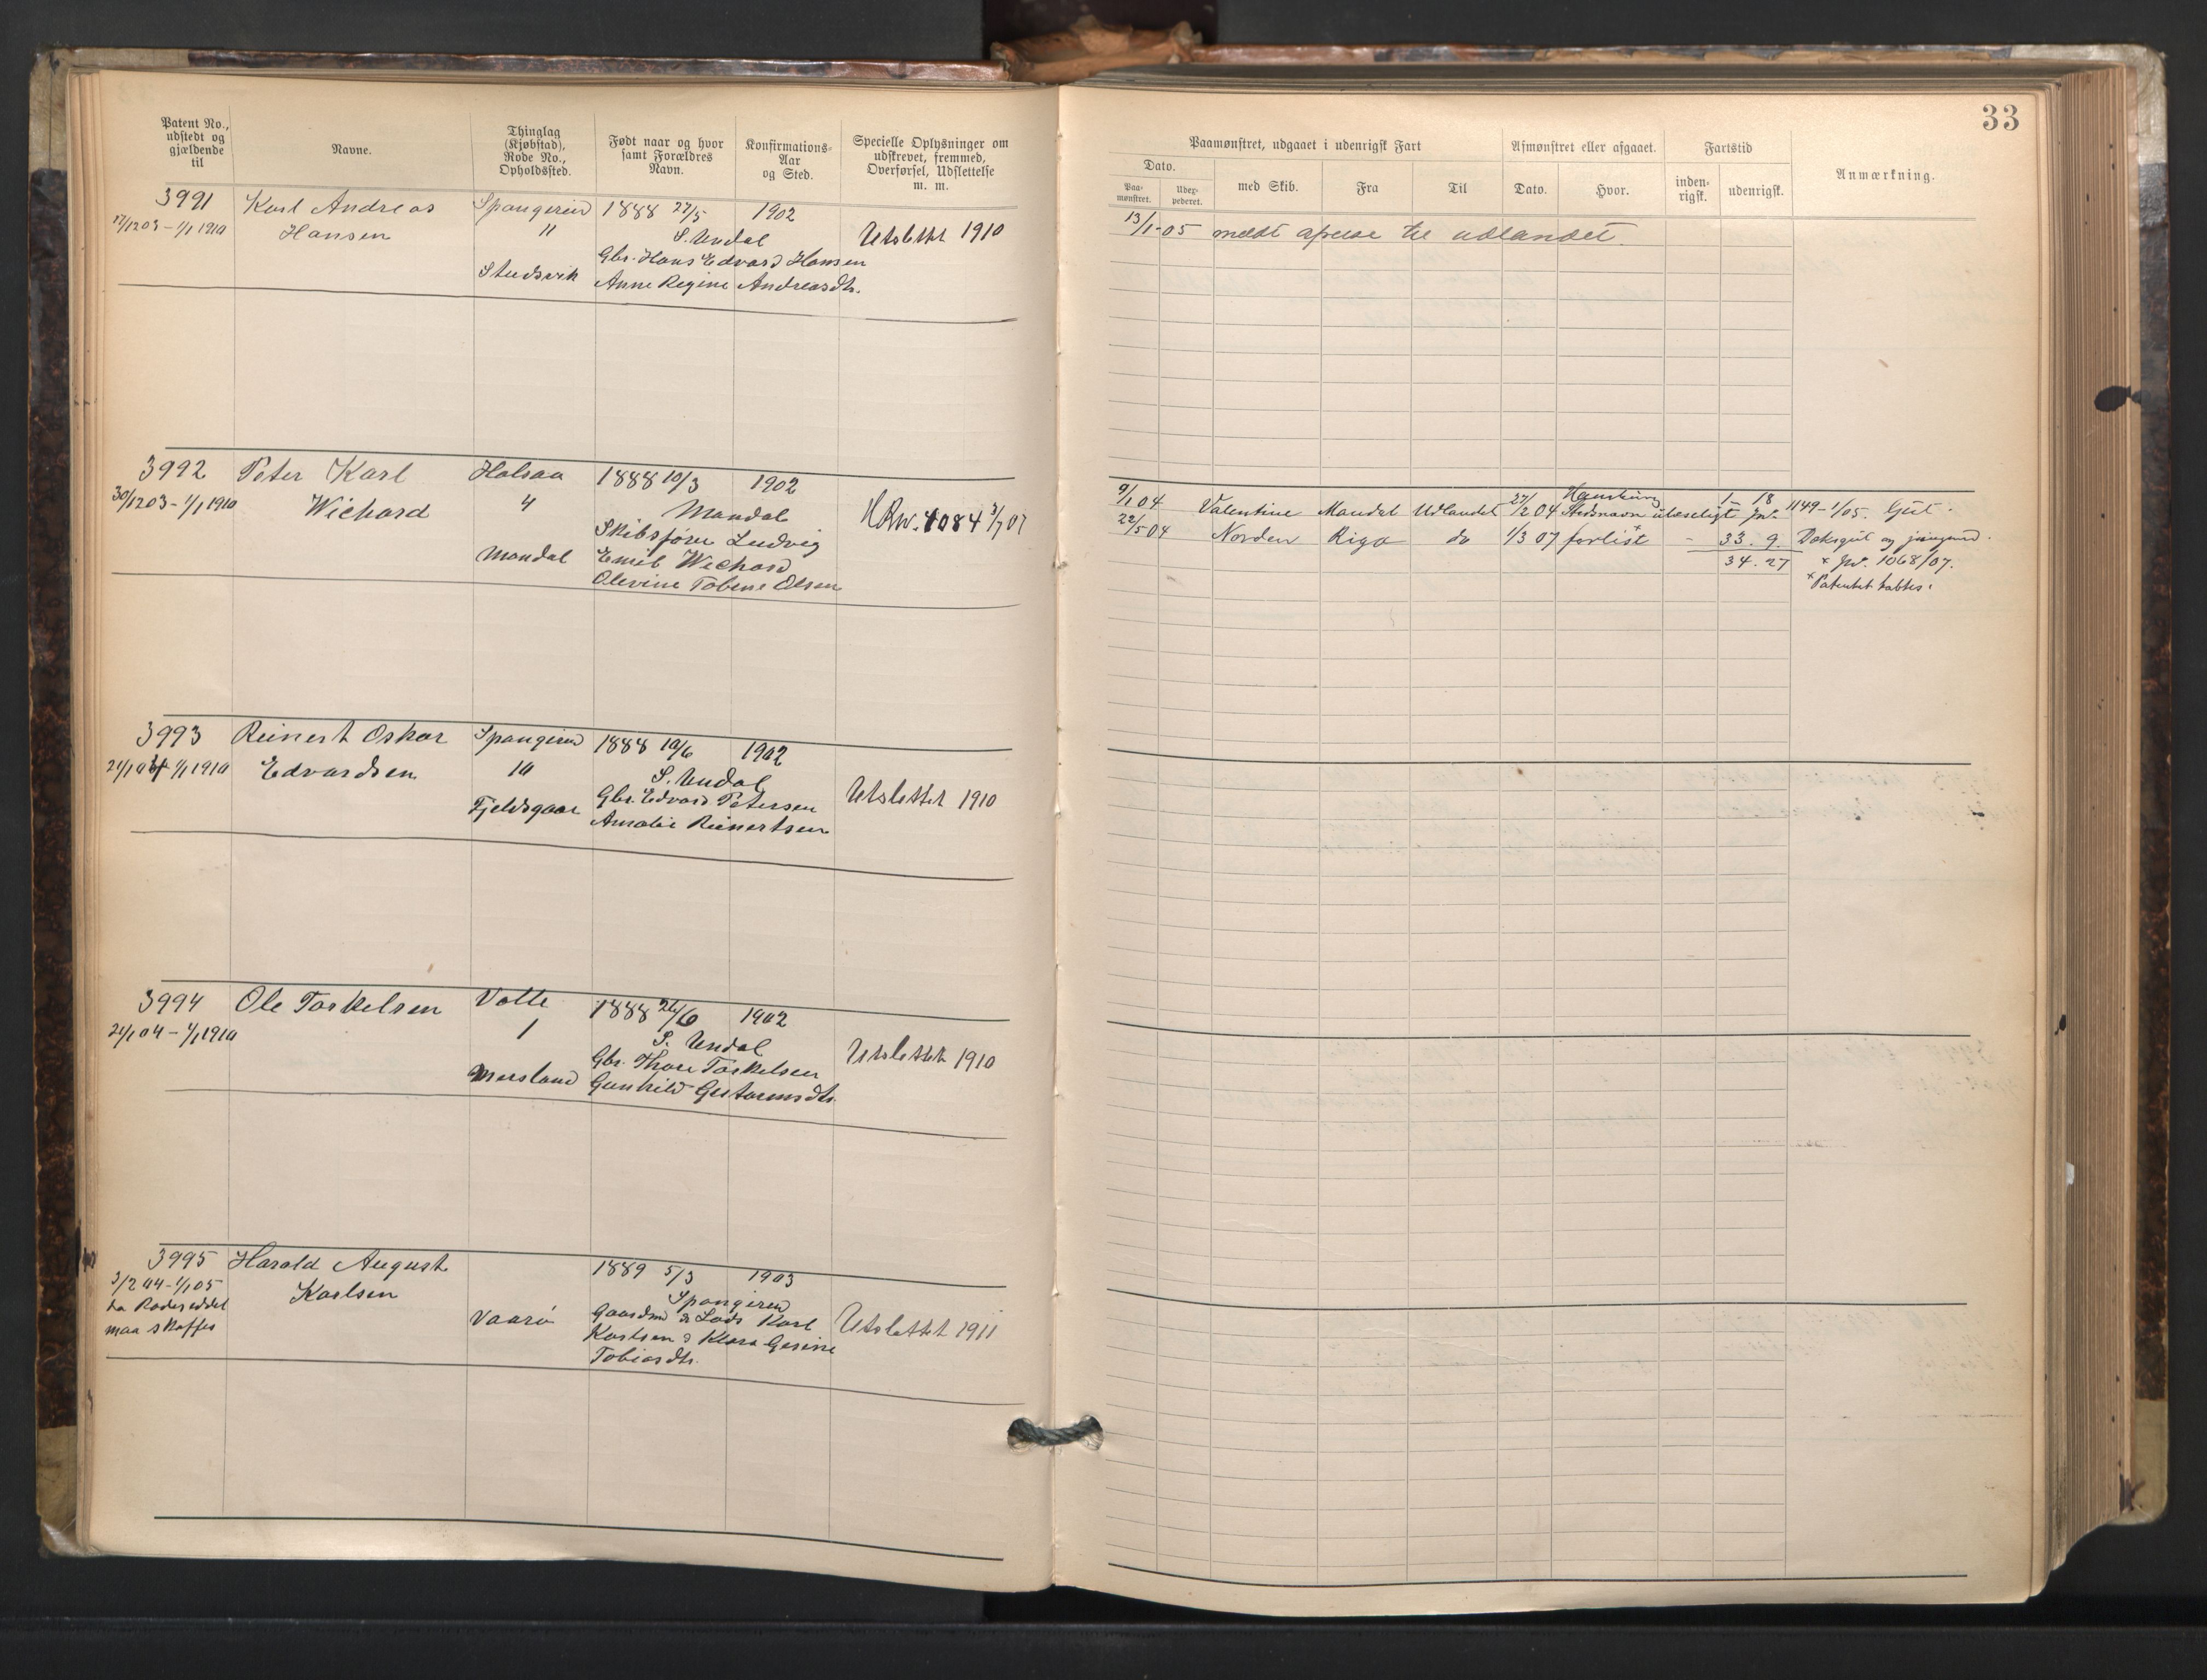 33
Patent No., udstedt og gjældende til
Navne.
Thinglag (Kjøbstad), Rode No., Opholdssted.
Født naar og hvor samt Forældres Navn.
Konfirmations-Aar og Sted.
Specielle Oplysninger om udskrevet, fremmed, Overførsel, Udslettelse m. m.
Paamønstret, udgaaet i udenrigsk Fart
Afmønstret eller afgaaet.
Fartstid
Anmærkning.
Dato.
Paa-mønstret.
Udex-pederet.
med Skib.
Fra
Til
Dato.
Hvor.
inden-rigsk.
udenrigsk.
3991 Karl Andreas Spangereid 1888 27/5 1902
17/12 03 - 1/1 1910 Hansen 11 S. Undal Utslettet 1910
Gbr. Hans Edvard Hansen
Studsvik Anne Regine Andreasdtr.
13/1-05 meldt afreise til udlandet.
3992 Peter Karl Halsaa 1888 10/3 1902
30/12 03 - 1/1 1910 Wichard 4 Mandal 4084 3/7 07
Skibsfører Ludvig
Mandal Emil Wichard
Olevine Tobine Olsen
9/1 04 Valentine Mandal Udlandet 27/2 04 Hamburg Stedsnavn ulæseligt 1 - 18 Jnr. 1149-1/05. Gut.
22/5 04 Norden Riga do 1/3 07 forlist x - 33. 9. Dæksgut og jungmd.
34. 27 x Jnr. 1068/07.
x Patentet tabtes.
3993 Reinert Oskar Spangereid 1888 10/6 1902
21/1 04 - 1/1 1910 Edvardsen 10 S. Undal
Gbr. Edvard Petersen Utslettet 1910
Fjeldsgaar Amalie Reinertsen
3994 Ole Torkelsen Valle 1888 26/6 1902
21/1 04 - 1/1 1910 1 S. Undal
Gbr. Thore Torkelsen Utslettet 1910
Gunhild
3995 Harald August 1889 5/3 1903
3/2 04 - 1/1 05 Karlsen Spangereid
maa skaffes Vaarø Gaardmd & Lods Karl Utslettet 1911
Karlsen & Klara Gesine
Tobiasdtr.